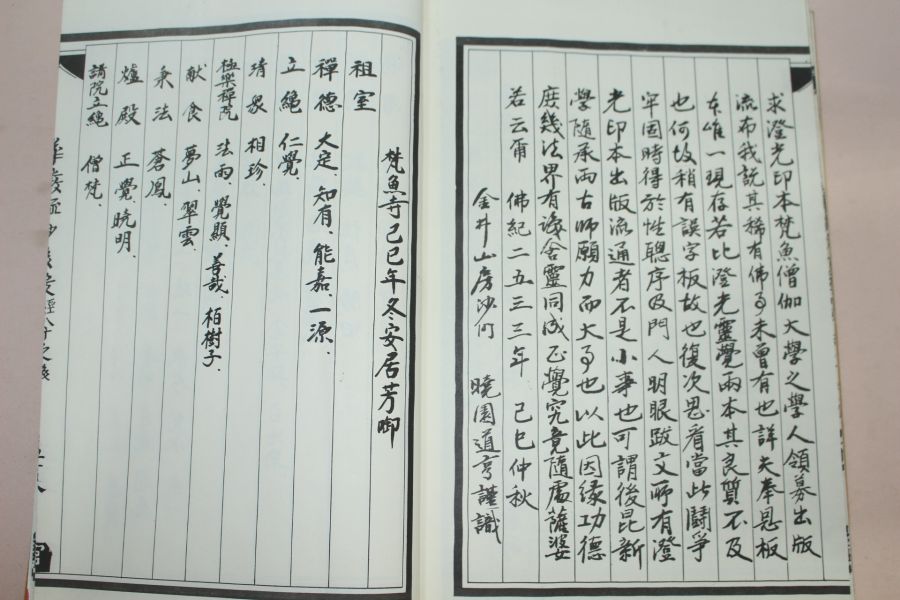 求澄光印本梵魚僧伽大學之學人領募出版
流布我說其稀有佛事未曾有也詳夫奉恩板
本唯一現存若比澄光靈覺兩本其良質不及
也何故稍有誤字板故也復次思看當此鬪爭
牢固時得於性聰序及門人明眼跋文所有澄
光印本出版流通者不是小事也可謂後昆新
學隨承而古師願力而大事也以此因緣功德
庶幾法界有識含靈同成正覺究竟隨處薩婆
若云爾 佛紀二五三三年 己巳仲秋
金井山房沙門 曉園道亨謹識
梵魚寺己巳年冬安居芳啣
祖室
禪德 大定、知有、能嘉、一源、
立繩 仁覺、
清衆 相珍、
極樂禪院 法雨、覺顯、善哉、栢樹子、
献食 夢山、翠雲、
秉法 蒼鳳、
爐殿 正覺、曉明、
講院立繩 僧梵、